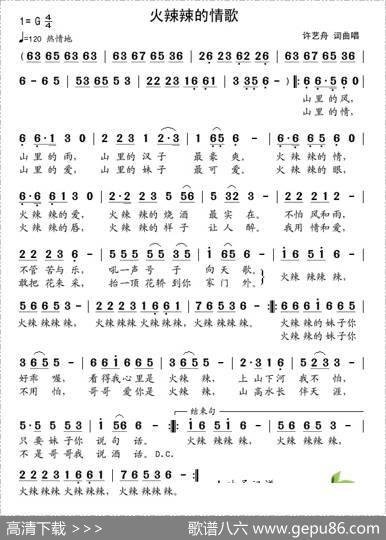 火辣辣的情歌
1= G 4/4
♩=120 热情地
许艺舟 词曲唱
( 63 65 53 36 | 63 67 65 36 | 26 23 62 26 | 63 67 65 36 |
6 - 65 | 53 65 53 | 223 221 661 | 3335 6 - ) |: 665 60 |
山里的风,
山里的情,
6 6·1 3 0 | 2 2 2 3 1 2·3 | 1 65 6 - | 6·6 65 6 0 |
山里的雨, 山里的汉子 最豪爽。 火辣辣的情,
山里的爱, 山里的妹子 最可爱。 火辣辣的眼,
6·6 61 3 0 | 2·2 22 3 56 | 5 32 3 - | 3 3 2 3 5 |
火辣辣的爱, 火辣辣的烧酒 最实在。 不怕风和雨,
火辣辣的唇, 火辣辣的样子 让人醉。 我用情和爱,
2 2 2 3 6 - | 5 5 5 5 3 5 | 1 65 6 - | 1 65 1 6 |
不管苦与乐, 吼一声号子 向天歌。 火辣辣辣,
敢把花来采, 抬一顶花轿到你 家门外。
5 6 6 5 3 - | 2 2 2 3 2 2 1 6 6 1 | 7 6 5 3 6 - :|: 6 6 6 1 6 6 5
火辣辣辣辣, 火辣辣辣火辣辣辣, 火辣辣辣辣, 火辣辣的妹子你
火辣辣的妹子你
3 6 5 5 - | 6 6 1 6 6 5 | 3 6 5 5 - | 2·3 1 6 | 5 1 3 2 - |
好乖喔, 看得我心里是 火辣辣, 上山下河 我不怕,
不用怕, 哥哥爱你是 火辣辣, 山高水长 伴天涯,
结束句
5· 5 5 5 3 | 1 56 6 - :| 1 6 5 1 - | 5 6 6 5 3 - |
只要妹子你 说句话。 火辣辣辣, 火辣辣辣辣,
不是哥哥我 说酒话。D.C.
2 2 2 3 2 2 1 6 6 1 | 7 6 5 3 6 - ||
火辣辣辣火辣辣辣, 火辣辣辣辣,
高清下载 >>>
歌谱八六 www.gepu86.com